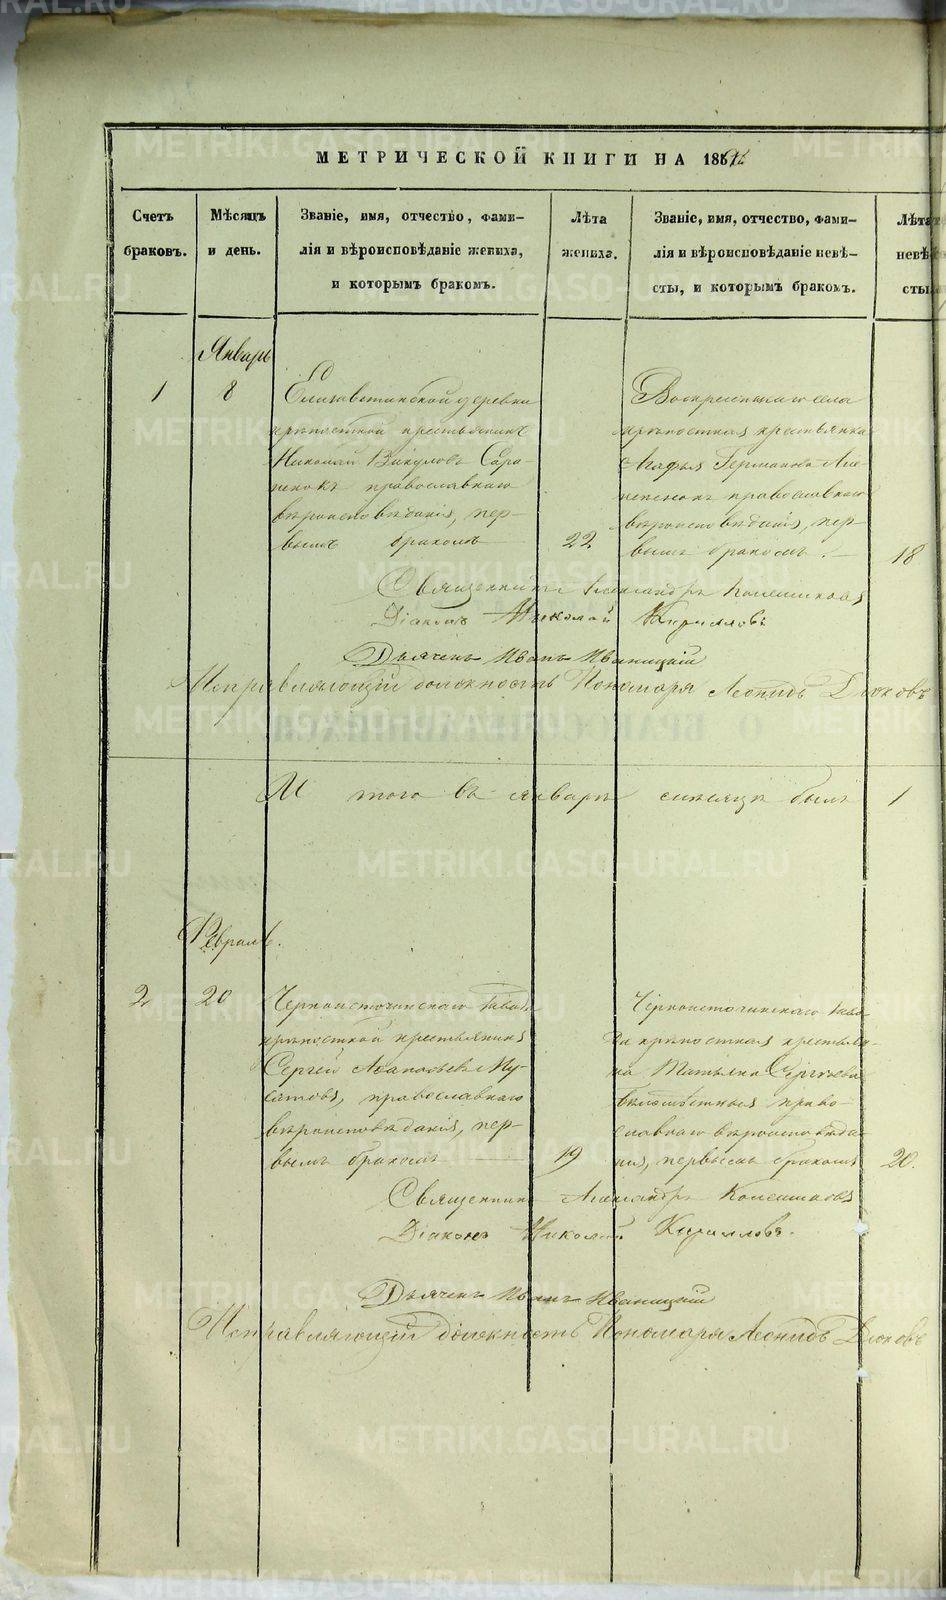 МЕТРИЧЕСКОЙ КНИГИ НА 186
Счетъ браковъ.
Мѣсяцъ и день.
Званіе, имя, отчество, фами-
лія и вѣроисповѣданіе жениха,
и которымъ бракомъ.
Лѣта жениха.
Званіе, имя, отчество, фами-
лія и вѣроисповѣданіе невѣ-
сты, и которымъ бракомъ.
Лѣта невѣ-
сты
Январь
1
8
Елизаветинской деревни
крѣпостной крестьянинъ
Николай Викуловъ
православнаго
вѣроисповѣданія, пер-
вымъ бракомъ
22
села
крѣпостная крестьянка
Агафья Германова
православнаго
вѣроисповѣданія, пер-
вымъ бракомъ.
18
Священникъ Александръ
Діаконъ Николай Кирилловъ
Дьячекъ Иванъ Иваницкій
Исправляющій должность Пономаря Леонидъ
И того въ январѣ мѣсяцѣ былъ 1
Февраль.
2
20
Черноисточинскаго Заво
крѣпостной крестьянинъ
Сергей Му-
сатовъ, православнаго
вѣроисповѣданія, пер-
вымъ бракомъ
19
Черноисточинскаго Заво-
да крѣпостная крестьян-
ка Татьяна Сергѣева
право-
славнаго вѣроисповѣда-
нія, первымъ бракомъ
20.
Священникъ Александръ
Діаконъ Николай Кирилловъ.
Дьячекъ Иванъ Иваницкій
Исправляющій должность Пономаря Леонидъ
METRIKI.GASO-URAL.RU